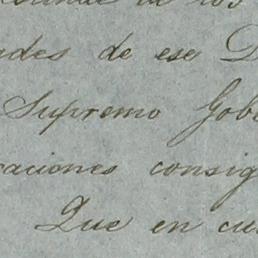 de los
ades de ese D
Supremo Gob
raciones consig
Que en cu